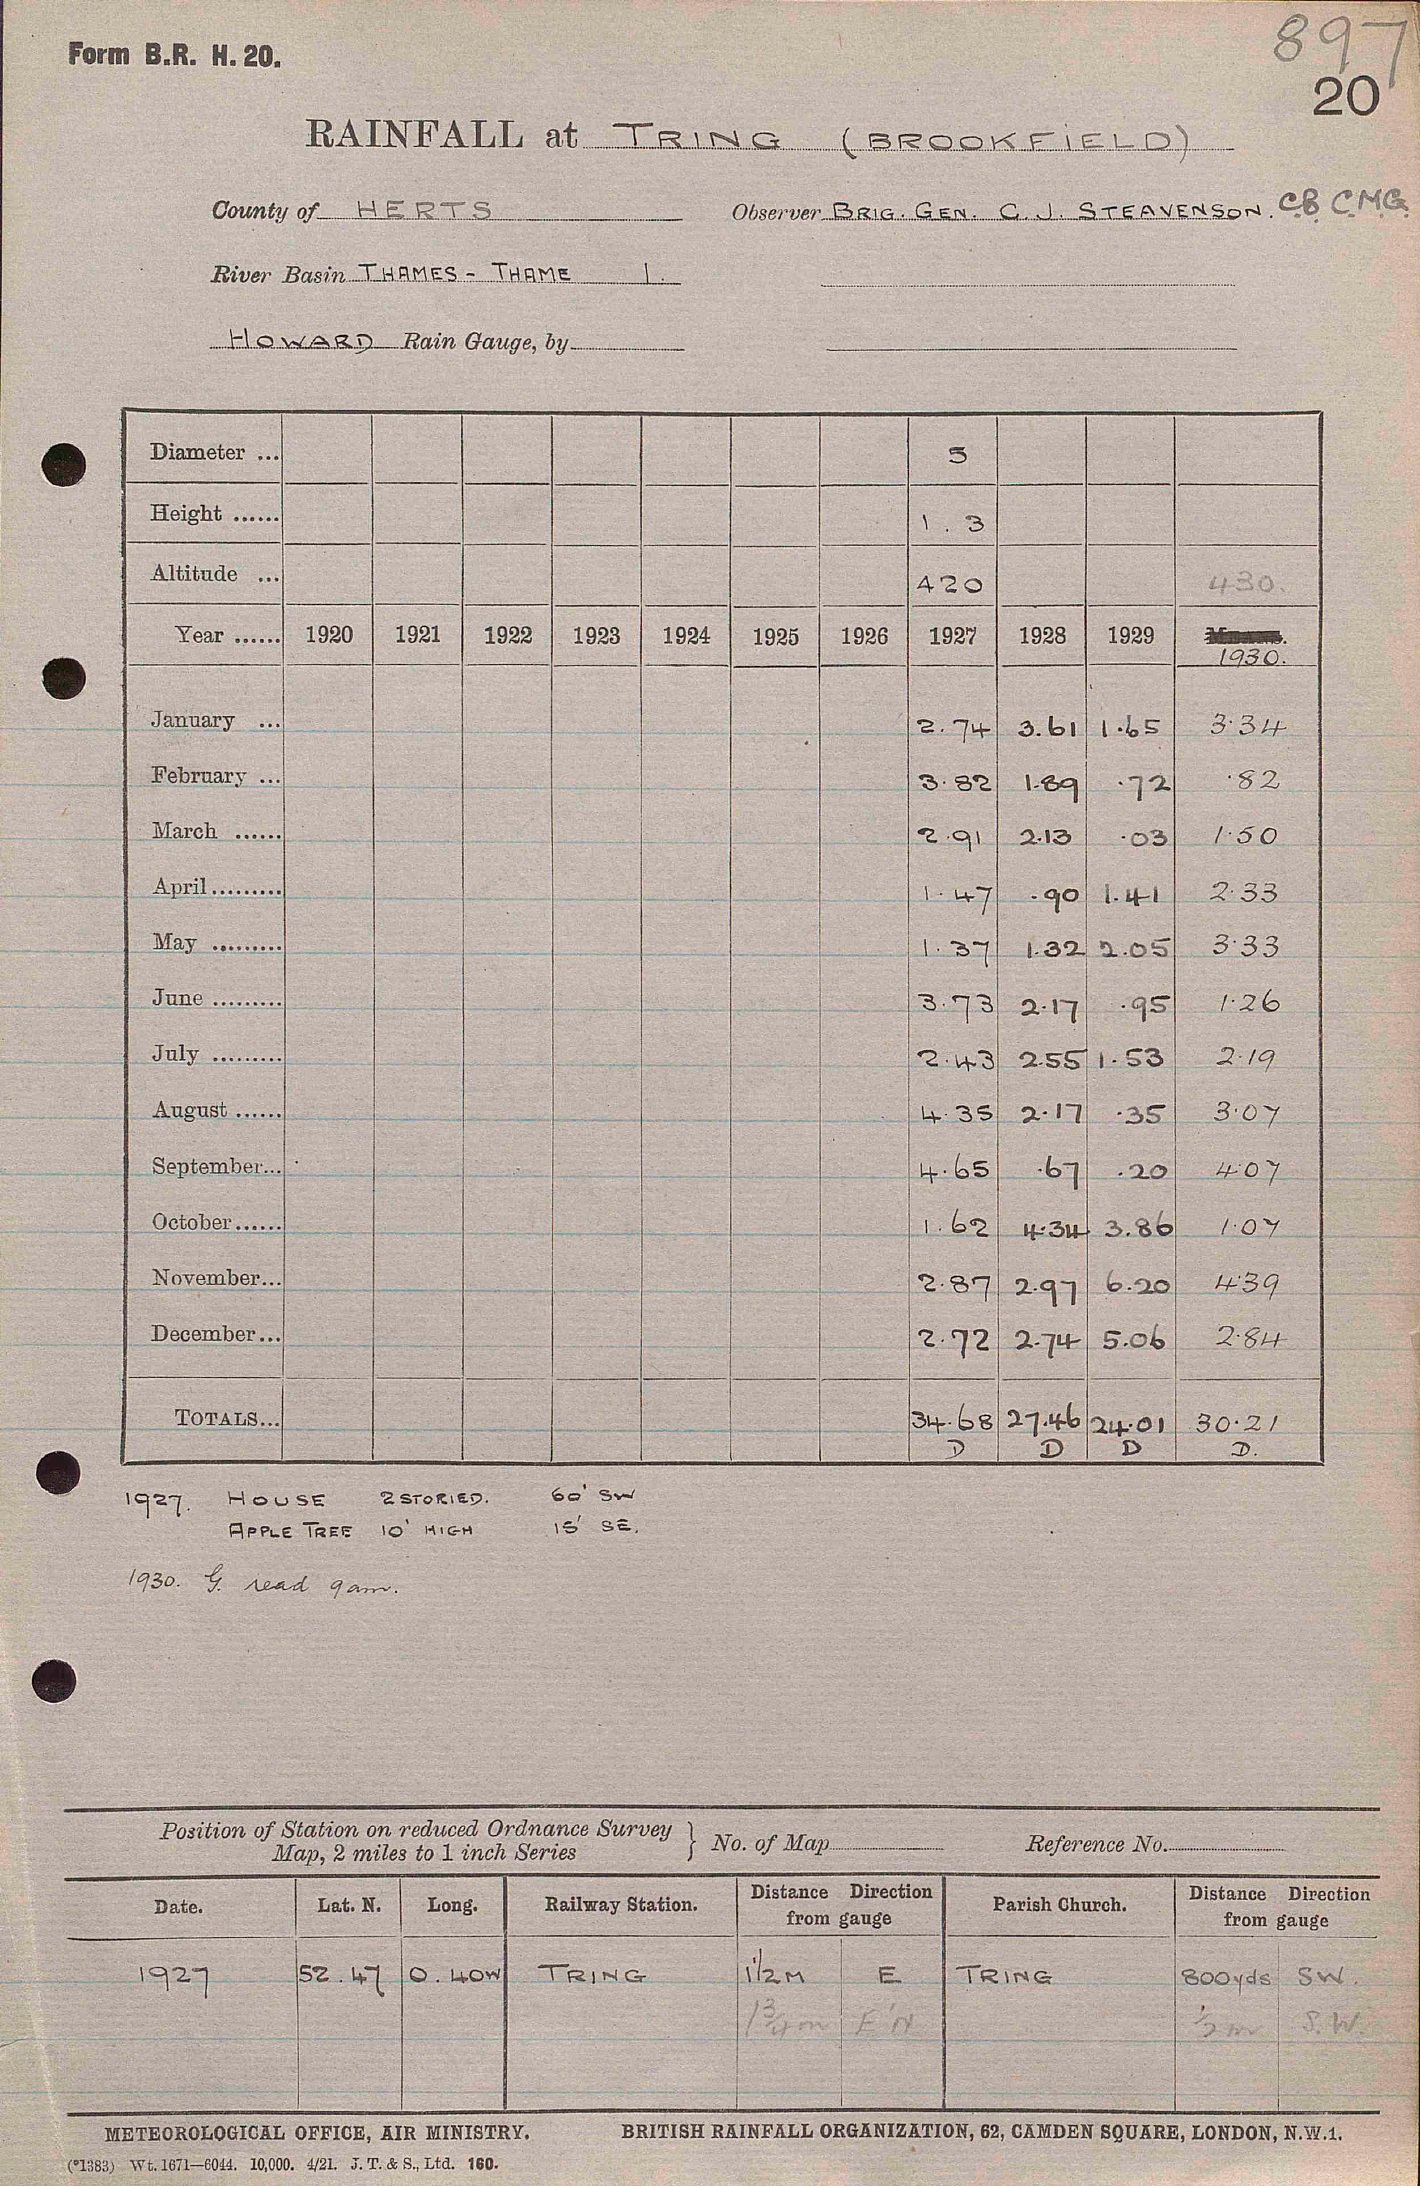 897
Form B.R. H. 20.
20
RAINFALL at TRING (BROOKFIELD)
County of HERTS Observer BRIG. GEN. C. J. STEAVENSON. C.B. C.M.G.
River Basin THAMES - THAME 1.
HOWARD Rain Gauge, by
Diameter ... 5
Height ...... 1 . 3
Altitude ... 420 430.
Year ...... 1920 1921 1922 1923 1924 1925 1926 1927 1928 1929
1930.
January ... 2.74 3.61 1.65 3.34
February ... 3.82 1.89 .72 .82
March ...... 2.91 2.13 .03 1.50
April......... 1.47 .90 1.41 2.33
May ......... 1.37 1.32 2.05 3.33
June ......... 3.73 2.17 .95 1.26
July ......... 2.43 2.55 1.53 2.19
August ...... 4.35 2.17 .35 3.07
September... 4.65 .67 .20 4.07
October...... 1.62 4.34 3.86 1.07
November... 2.87 2.97 6.20 4.39
December... 2.72 2.74 5.06 2.84
TOTALS... 34.68 27.46 24.01 30.21
D D D D.
1927. HOUSE 2 STORIED. 60' SW
APPLE TREE 10' HIGH 15' SE.
1930. G. read 9am.
Position of Station on reduced Ordnance Survey
Map, 2 miles to 1 inch Series } No. of Map Reference No.
Date. Lat. N. Long. Railway Station. Distance Direction from gauge Parish Church. Distance Direction from gauge
1927 52.47 0.40W TRING 1½M E TRING 800yds SW.
1¾m E'N ½m S.W.
METEOROLOGICAL OFFICE, AIR MINISTRY. BRITISH RAINFALL ORGANIZATION, 62, CAMDEN SQUARE, LONDON, N.W.1.
(*1383) Wt. 1671—6044. 10,000. 4/21. J. T. & S., Ltd. 160.